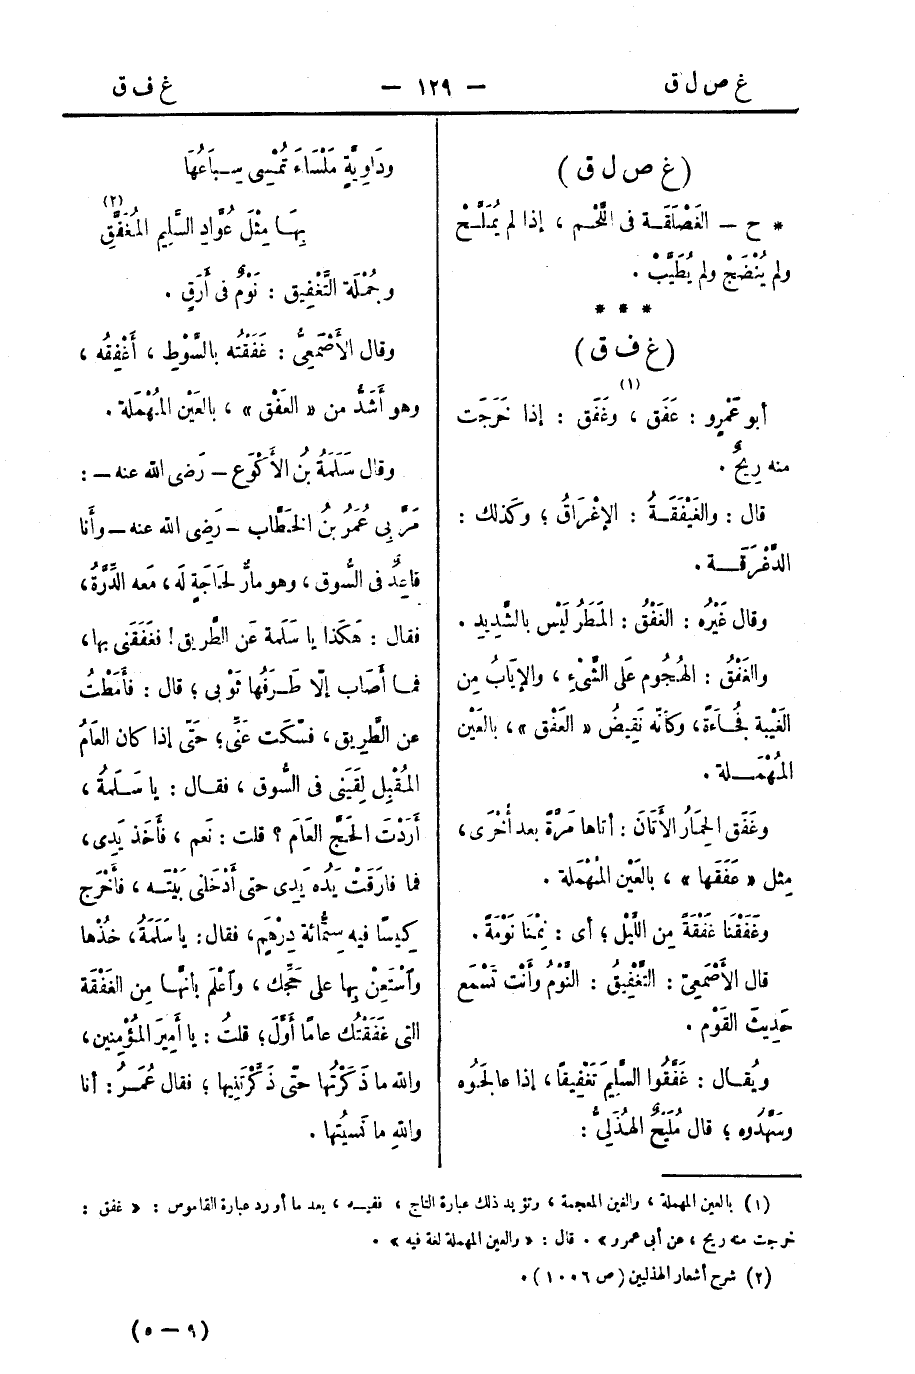 غ ص ل ق — ١٢٩ — غ ف ق
(غ ص ل ق)
* ح – الغَصْلَقَة فى اللَّحْم ، إذا لم يُمَلَّحْ
ولم يُنْضَجْ ولم يُطَيَّبْ .
* * *
(غ ف ق)
أبو عَمْرٍو : عَفَق ، وغَفَق : إذا خَرَجَت (١)
منه رِيحٌ .
قال : والغَيْفَقَةُ : الإغْراقُ ؛ وكَذلك :
الدَّغْرَقَة .
وقال غَيْرُه : الغَفْقُ : المَطَرُ لَيْس بالشَّدِيد .
والغَفْقُ : الهُجُوم عَلى الشَّىْءِ ، والإيَابُ مِن
الغَيْبة فُجَاءَةً ، وكأنّه نَقِيضُ « العَفْق » ، بالعَيْن
المُهْمَلة .
وغَفَق الحِمَارُ الأَتَانَ : أتاها مَرَّةً بعد أُخْرَى ،
مِثل « عَفَقها » ، بالعَيْن المُهْمَلة .
وغَفَقْنَا غَفْقَةً مِن اللَّيْل ؛ أى : نِمْنَا نَوْمَةً .
قال الأَصْمَعِىّ : التَّغْفِيقُ : النَّوْمُ وأَنْت تَسْمَع
حَدِيثَ القَوْم .
ويُقال : غَفَّقُوا السَّلِيمَ تَغْفِيقًا ، إذا عالَجُوه
وسَهَّدُوه ؛ قال مُلَيْحٌ الهُذَلِىُّ :
ودَاوِيَّةٍ مَلْسَاءَ تُمْسِى سِبَاعُهَا
بِهَا مِثْلَ عُوَّادِ السَّلِيمِ المُغَفَّقِ (٢)
وجُمْلَة التَّغْفِيق : نَوْمٌ فى أَرَقٍ .
وقال الأَصْمَعِىُّ : غَفَقْتُه بالسَّوْطِ ، أَغْفِقُه ،
وهو أَشَدُّ من « العَفْق » ، بالعَيْن المُهْمَلة .
وقال سَلَمَةُ بنُ الأَكْوَع – رَضى الله عنه – :
مَرّ بِى عُمَرُ بنُ الخَطَّاب – رَضِى الله عنه – وأَنا
قاعِدٌ فى السُّوق ، وهو مارٌّ لحَاجَةٍ لَه ، مَعه الدِّرَّةُ ،
فقال : هَكَذا يا سَلَمة عَن الطَّرِيق ! فغَفَقَنى بها ،
فما أَصَاب إلّا طَرَفُها ثَوْبى ؛ قال : فأَمَطْتُ
عن الطَّرِيق ، فسَكَت عَنِّى ؛ حَتَّى إذا كان العَامُ
المُقْبِل لقِيَنى فى السُّوق ، فقال : يا سَلَمةُ ،
أَرَدْتَ الحَجَّ العَامَ ؟ قلت : نَعم ، فأَخَذ يَدِى ،
فما فارَقَتْ يَدُه يَدِى حتى أَدْخَلنى بَيْتَه ، فأَخْرَج
كِيسًا فيه سِتُّمائة دِرْهَم ، فقال : يا سَلَمَةُ ، خُذْها
وٱسْتَعِنْ بِها على حَجِّك ، وٱعْلَم بأنَّها مِن الغَفْقَة
التى غَفَقْتُك عامًا أَوَّلَ ؛ قلتُ : يا أَمِيرَ المُؤْمِنين ،
والله ما ذَكَرْتُها حتّى ذَكَّرْتَنِيها ؛ فقال عُمَرُ : أنا
واللهِ ما نَسيتُها .
(١) بالعين المهملة ، والغين المعجمة ، وتؤيد ذلك عبارة التاج ، ففيه ، بعد ما أورد عبارة القاموس : « غفق :
خرجت منه ريح ، عن أبى عمرو » . قال : « والعين المهملة لغة فيه » .
(٢) شرح أشعار الهذليين (ص ١٠٠٦) .
(٩ – ٥)